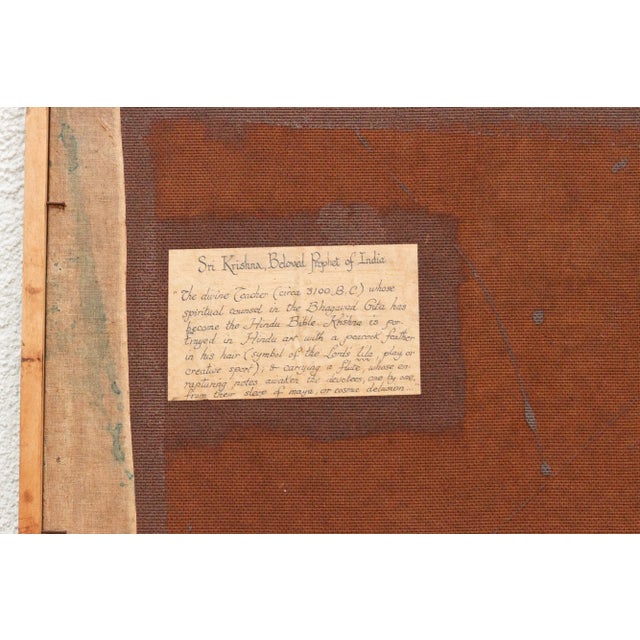 Sri Krishna, Beloved Prophet of India
"The divine Teacher (circa 3100 B.C) whose
spiritual counsel in the Bhagavad Gita has
become the Hindu Bible. Krishna is por-
trayed in Hindu art with a peacock feather
in his hair (symbol of the Lords lila, play or
creative sport), & carrying a flute, whose en-
rapturing notes awaken the devotees, one by one,
from their sleep of maya, or cosmic delusion...